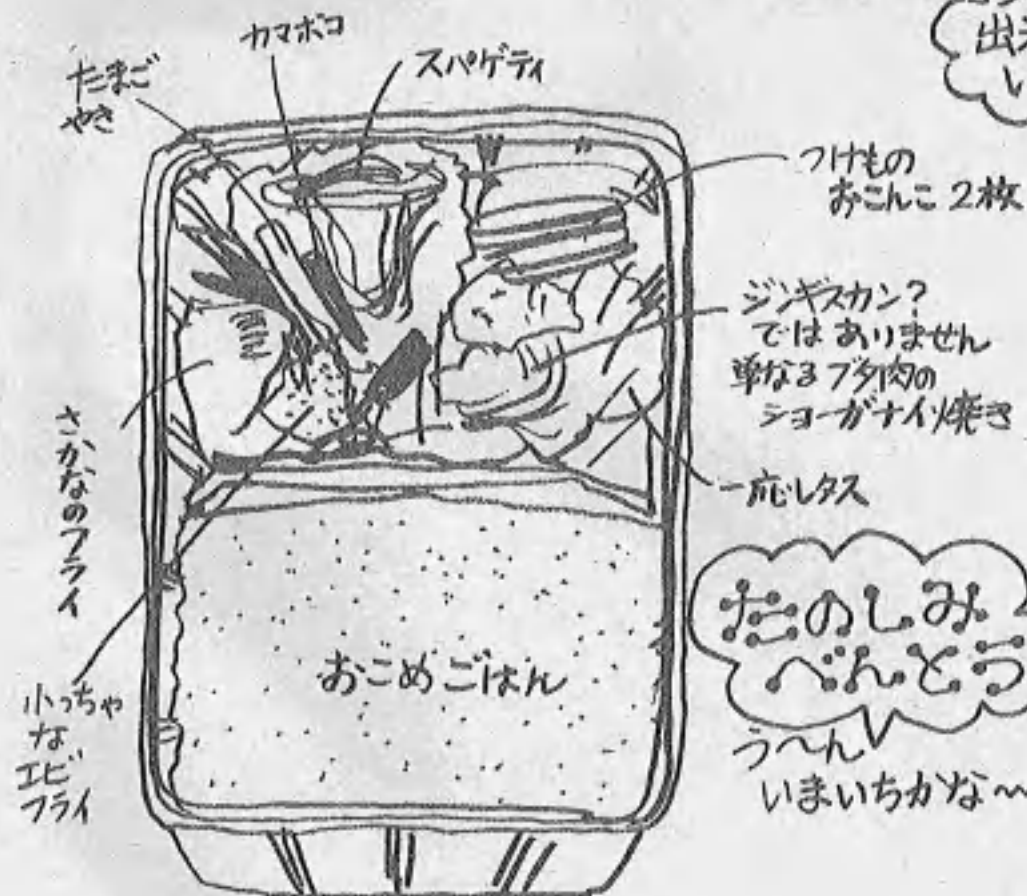 出来
い
カマボコ
たまご
やき
スパゲティ
つけもの
おこんこ 2枚
ジンギスカン?
ではありません
単なるブタ肉の
ショーガナイ焼き
一応レタス
さかなのフライ
小っちゃ
な
エビ
フライ
おこめごはん
たのしみ
べんとう
う〜ん
いまいちかな〜